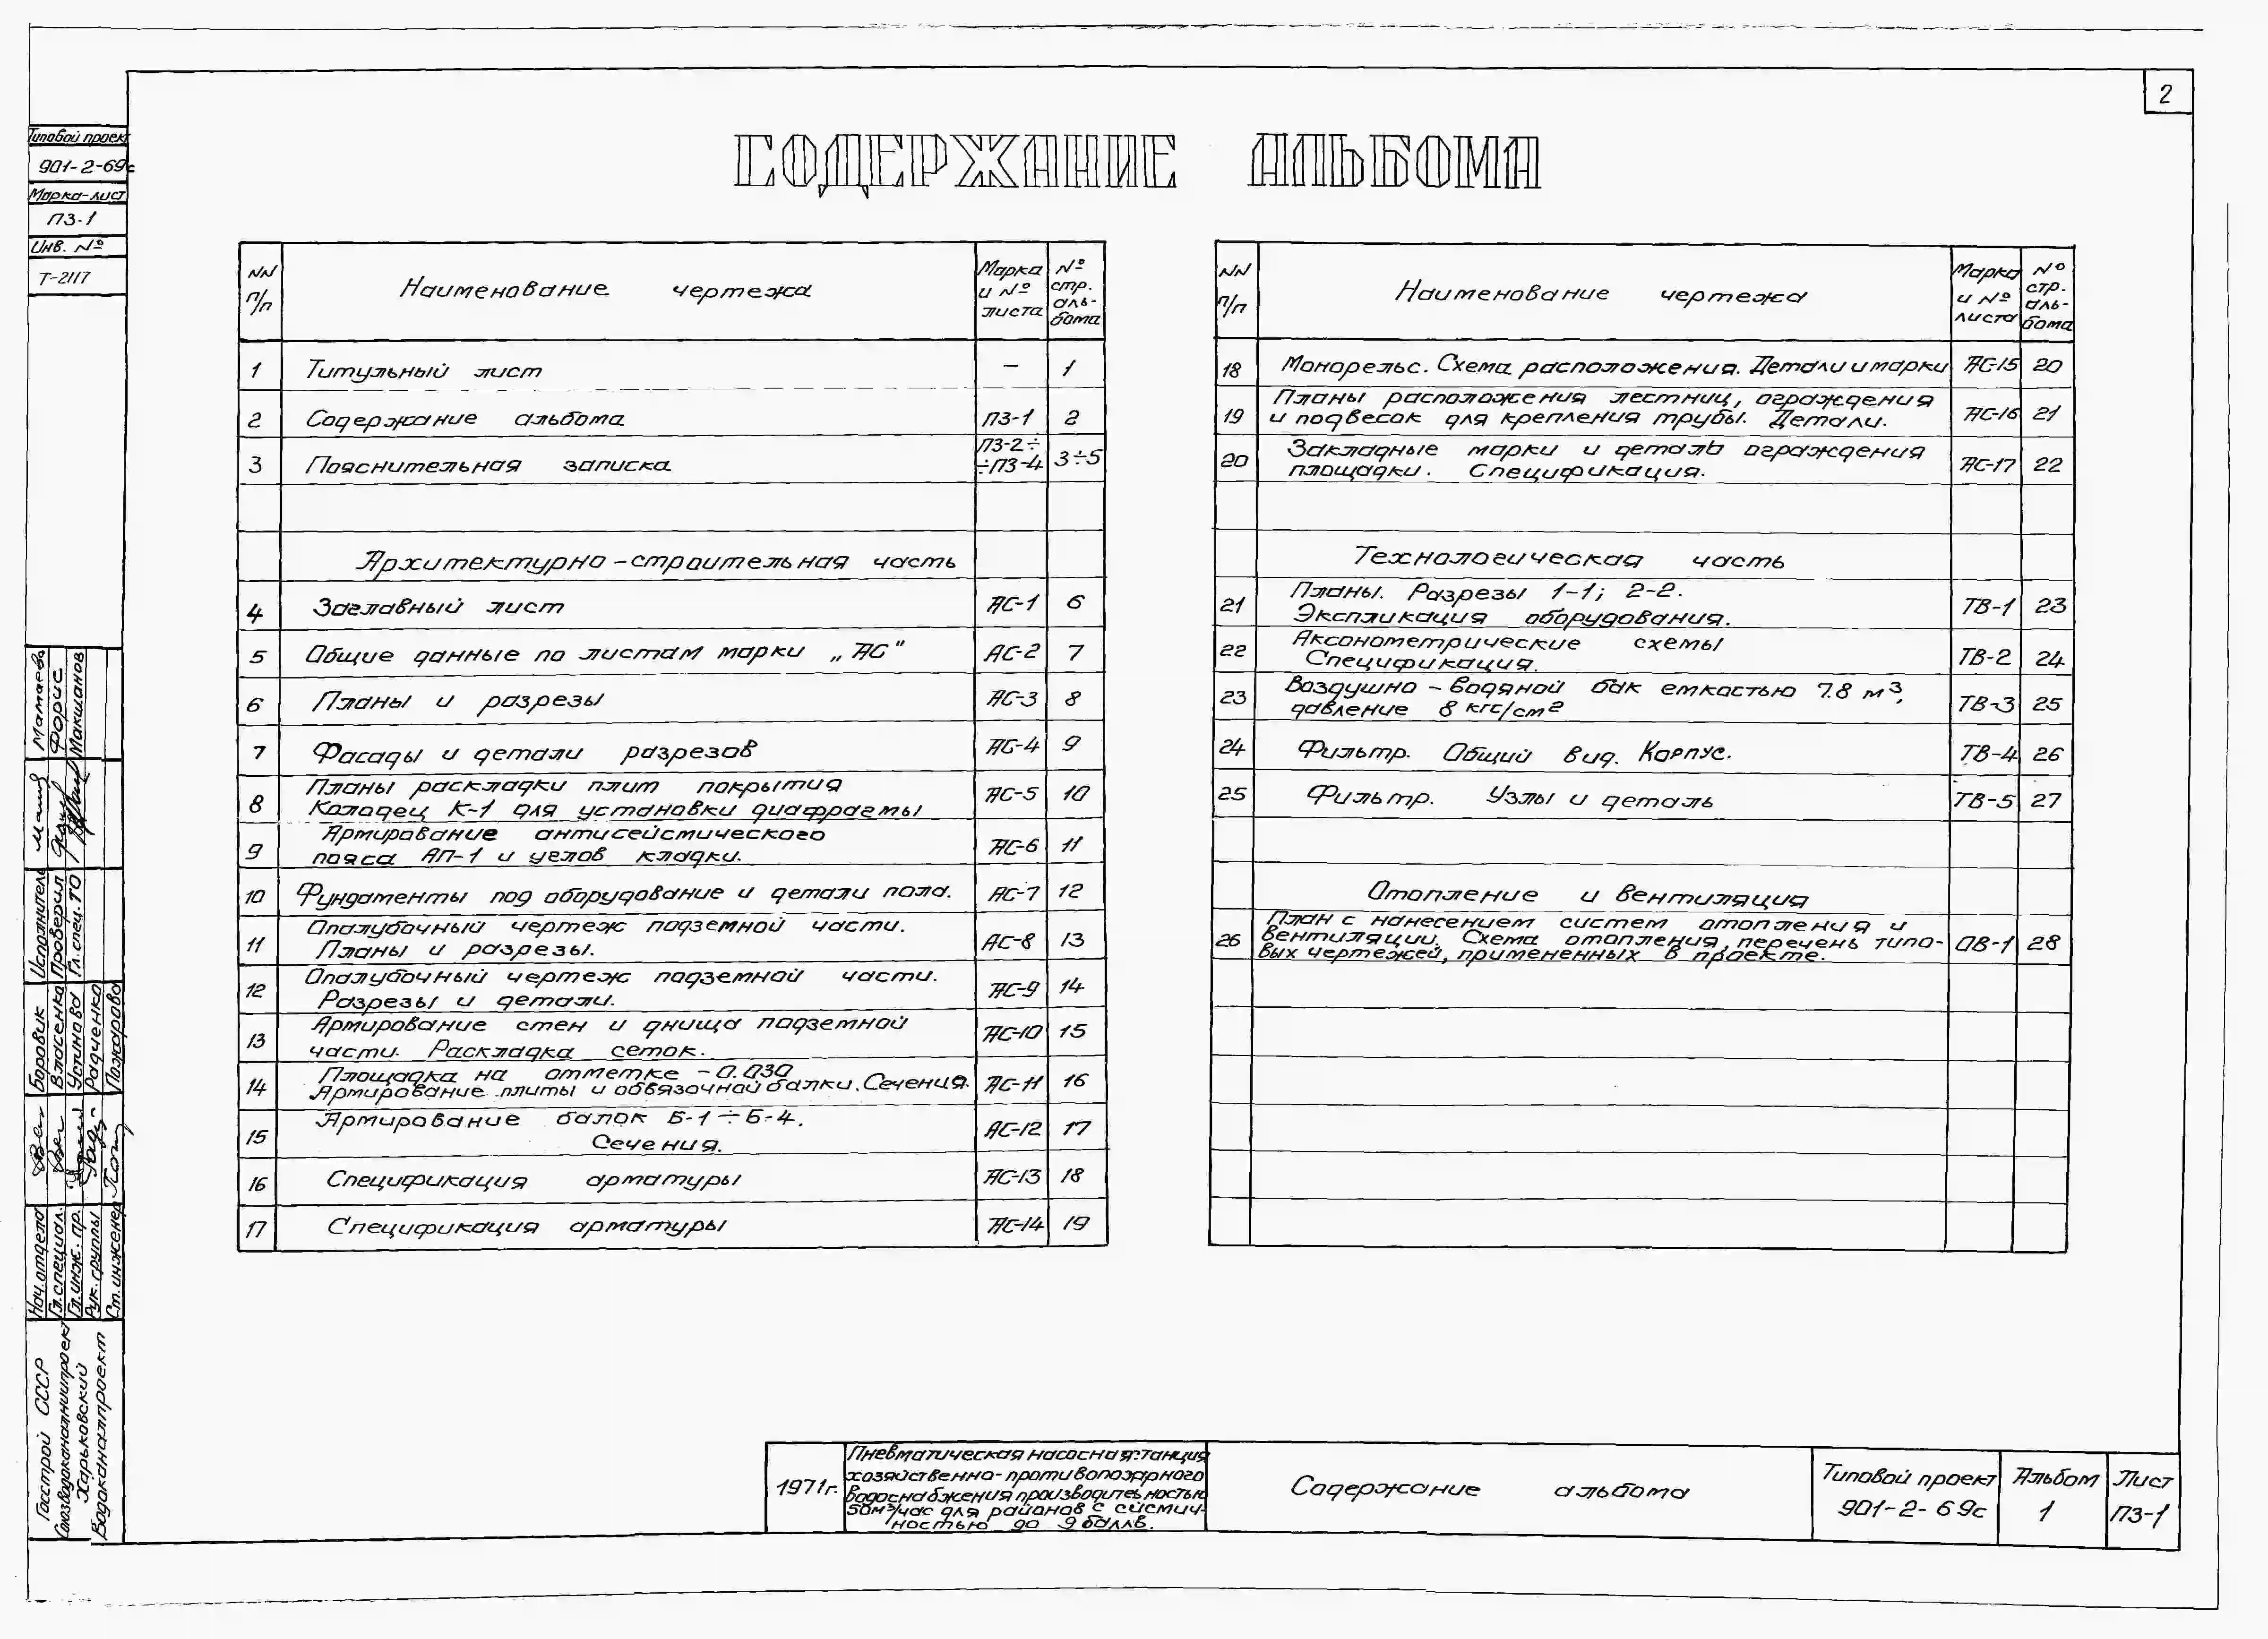 2
Типовой проект
901-2-69с
Марка-лист
ПЗ-1
Инв. №
Т-2117
СОДЕРЖАНИЕ АЛЬБОМА
NN п/п Наименование чертежа Марка и № листа № стр. альбома
1 Титульный лист — 1
2 Содержание альбома ПЗ-1 2
3 Пояснительная записка ПЗ-2÷ ÷ПЗ-4 3÷5
Архитектурно-строительная часть
4 Заглавный лист АС-1 6
5 Общие данные по листам марки „АС" АС-2 7
6 Планы и разрезы АС-3 8
7 Фасады и детали разрезов АС-4 9
8 Планы раскладки плит покрытия
Колодец К-1 для установки диафрагмы АС-5 10
9 Армирование антисейсмического
пояса АП-1 и углов кладки. АС-6 11
10 Фундаменты под оборудование и детали пола. АС-7 12
11 Опалубочный чертеж подземной части.
Планы и разрезы. АС-8 13
12 Опалубочный чертеж подземной части.
Разрезы и детали. АС-9 14
13 Армирование стен и днища подземной
части. Раскладка сеток. АС-10 15
14 Площадка на отметке -0.030
Армирование плиты и обвязочной балки. Сечения. АС-11 16
15 Армирование балок Б-1÷Б-4.
Сечения. АС-12 17
16 Спецификация арматуры АС-13 18
17 Спецификация арматуры АС-14 19
NN п/п Наименование чертежа Марка и № листа № стр. альбома
18 Монорельс. Схема расположения. Детали и марки АС-15 20
19 Планы расположения лестниц, ограждения
и подвесок для крепления трубы. Детали. АС-16 21
20 Закладные марки и деталь ограждения
площадки. Спецификация. АС-17 22
Технологическая часть
21 Планы. Разрезы 1-1; 2-2.
Экспликация оборудования. ТВ-1 23
22 Аксонометрические схемы
Спецификация. ТВ-2 24
23 Воздушно-водяной бак емкостью 7.8 м3,
давление 8 кгс/см2 ТВ-3 25
24 Фильтр. Общий вид. Корпус. ТВ-4 26
25 Фильтр. Узлы и деталь ТВ-5 27
Отопление и вентиляция
26 План с нанесением систем отопления и
вентиляции. Схема отопления, перечень типо-
вых чертежей, примененных в проекте. ОВ-1 28
Исполнитель Мамаева
Проверил Форис
Гл.спец.ТО Макшанов
Нач.отдела Боровик
Гл.специал. Власенко
Гл.инж.пр. Устинова
Рук.группы Радченко
Ст.инженер Пожарова
Госстрой СССР
Союзводоканалниипроект
Харьковский
Водоканалпроект
1971г.
Пневматическая насосная станция
хозяйственно-противопожарного
водоснабжения производительностью
50м3/час для районов с сейсмич-
ностью до 9 баллв.
Содержание альбома
Типовой проект
901-2-69с
Альбом
1
Лист
ПЗ-1